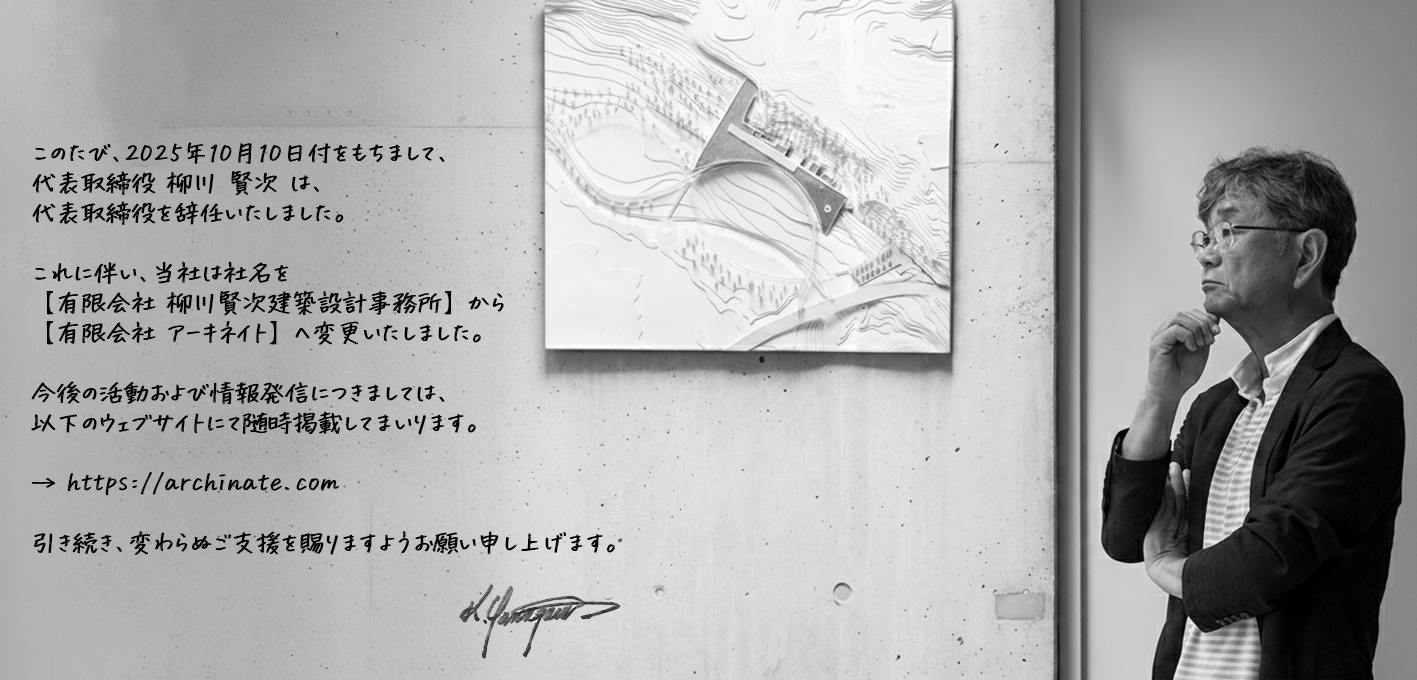 このたび、2025年10月10日付をもちまして、
代表取締役 柳川 賢次 は、
代表取締役を辞任いたしました。
これに伴い、当社は社名を
【有限会社 柳川賢次建築設計事務所】から
【有限会社 アーキネイト】へ変更いたしました。
今後の活動および情報発信につきましては、
以下のウェブサイトにて随時掲載してまいります。
→ https://archinate.com
引き続き、変わらぬご支援を賜りますようお願い申し上げます。